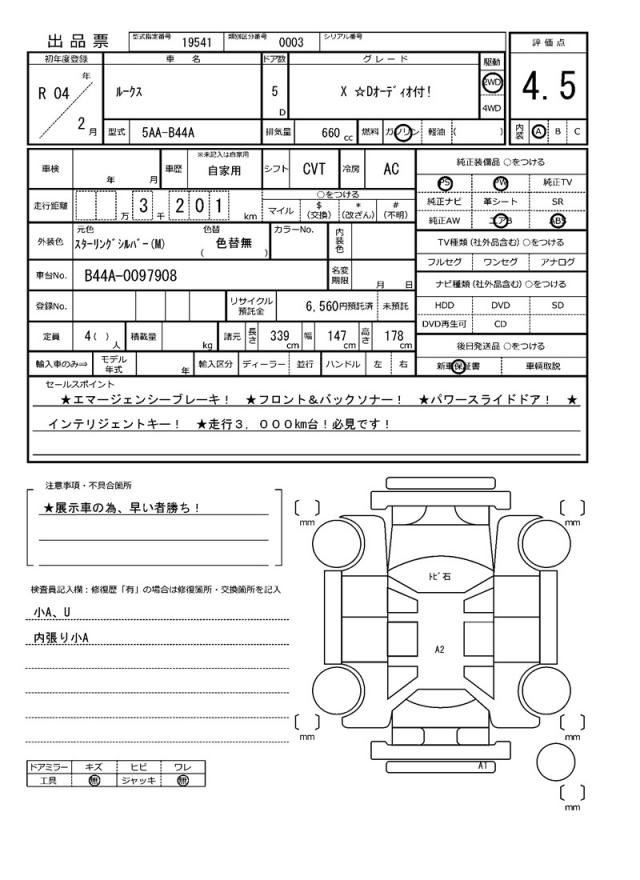 出品票 型式指定番号 19541 類別区分番号 0003 シリアル番号
初年度登録 車名 ドア数 グレード 駆動 評価点
R 04 年 2 月 ルークス 5 D X ☆Dオーディオ付! 2WD 4WD 4.5
型式 5AA-B44A 排気量 660 cc 燃料 ガソリン 軽油 ( ) 内装 A B C
車検 年 月 車歴 ※未記入は自家用 自家用 シフト CVT 冷房 AC
純正装備品 ○をつける
PS PW 純正TV
純正ナビ 革シート SR
純正AW エアB ABS
走行距離 万 3 千 2 0 1 km ○をつける マイル $(交換) *(改ざん) #(不明)
外装色 元色 スターリングシルバー(M) 色替 ( 色替無 ) カラーNo. 内装色
TV種類(社外品含む)○をつける
フルセグ ワンセグ アナログ
車台No. B44A-0097908 名変期限 月 日
ナビ種類(社外品含む)○をつける
HDD DVD SD
DVD再生可 CD
登録No. リサイクル預託金 6,560円預託済 未預託
定員 4( ) 人 積載量 kg 諸元 長さ 339 cm 幅 147 cm 高さ 178 cm
後日発送品 ○をつける
新車保証書 車輌取説
輸入車のみ⇒ モデル年式 年 輸入区分 ディーラー 並行 ハンドル 左 右
セールスポイント
★エマージェンシーブレーキ! ★フロント&バックソナー! ★パワースライドドア! ★
インテリジェントキー! ★走行3,000km台!必見です!
注意事項・不具合箇所
★展示車の為、早い者勝ち!
検査員記入欄:修復歴「有」の場合は修復箇所・交換箇所を記入
小A、U
内張り小A
ドアミラー キズ ヒビ ワレ
工具 無 ジャッキ 無
[ ] mm
[ ] mm
トビ石
A2
[ ] mm
[ ] mm
A1
[ ] mm